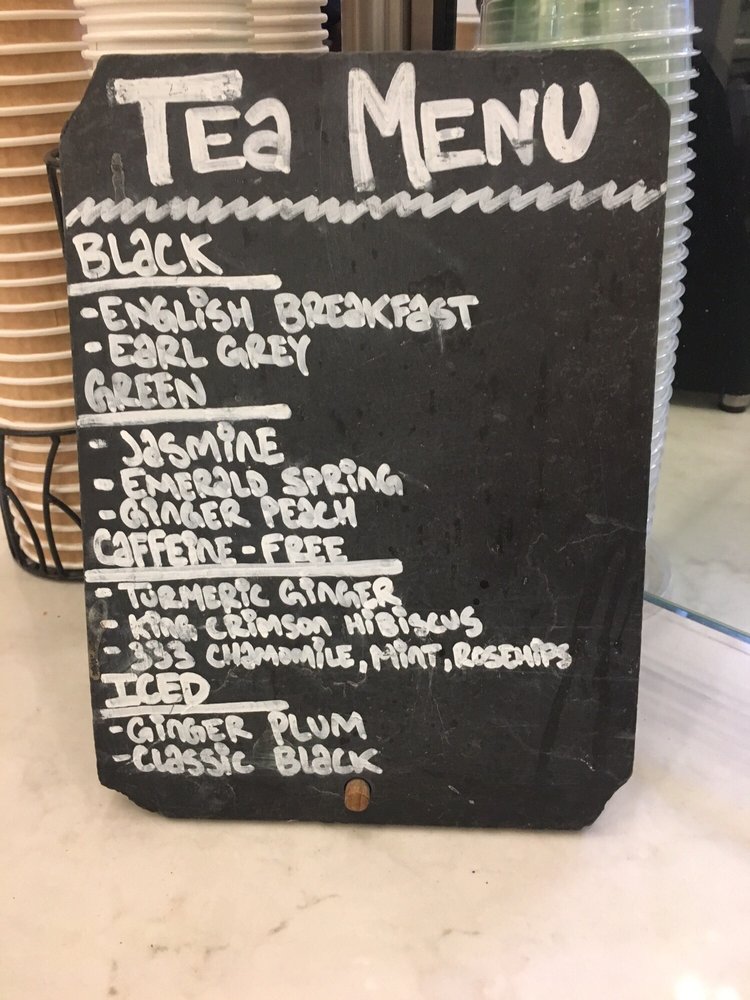 TEa MENU
BLaCK
-ENGLiSH BREaKFaST
-EaRL GREY
GREEN
- JaSMiNE
- EMERaLD SPRiNG
-GiNGER PEaCH
CaFFEiNE-FREE
- TURMERiC GiNGER
- KiNG CRiMSON HiBiSCUS
- 333 CHaMOMiLE, MiNT, ROSEHiPS
ICED
-GiNGER PLUM
-CLaSSiC BLaCK